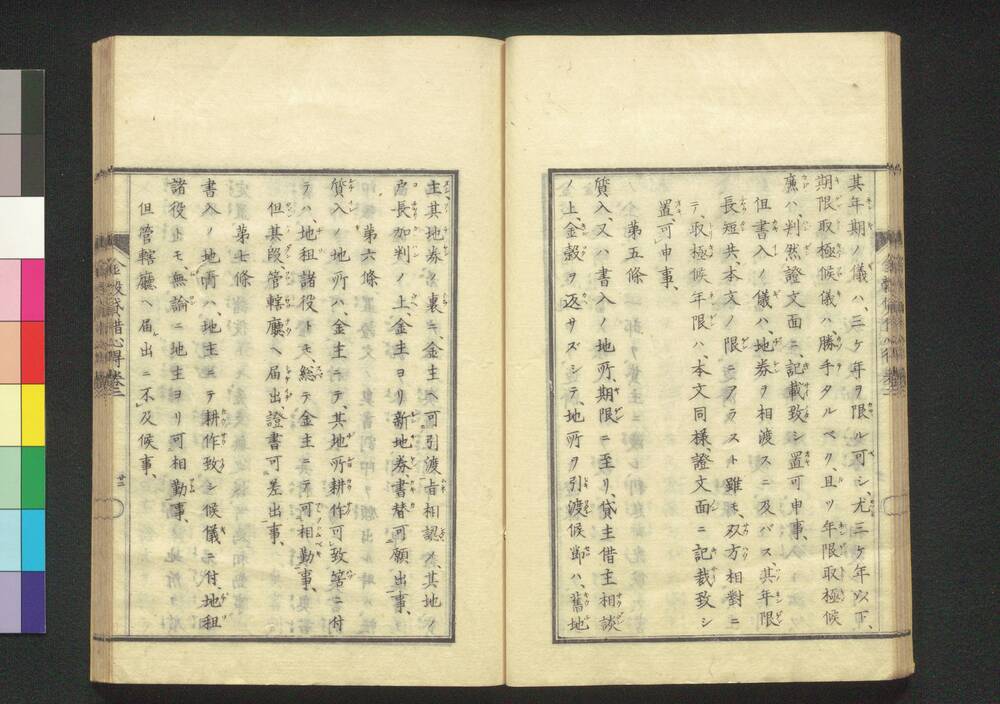 其年期ノ儀ハ、三ケ年ヲ限ル可シ、尤三ケ年以下、
期限取極候儀ハ、勝手タルベク、且ツ年限取極候
廉ハ、判然證文面ニ、記載致シ置可申事、
但書入ノ儀ハ、地券ヲ相渡スニ及バス、其年限
長短共、本文ノ限ニアラスト雖モ、双方相對ニ
テ、取極候年限ハ、本文同様、證文面ニ記裁致シ
置可申事、
第五條
質入、又ハ書入ノ地所、期限ニ至リ、貸主借主相談
ノ上、金穀ヲ返サズシテ、地所ヲ引渡候節ハ、舊地
主、其地券ノ裏ニ、金主ヘ可引渡旨相認メ、其地ノ
戸長加判ノ上、金主ヨリ新地券書替可願出事、
第六條
質入ノ地所ハ、金主ニテ、其地所耕作可致筈ニ付
テハ、地租諸役トモ、総テ金主ニテ可相勤事、
但其段管轄廳ヘ届出、證書可差出事、
第七條
書入ノ地所ハ、地主ニテ耕作致シ候儀ニ付、地租
諸役トモ、無論ニ地主ヨリ可相勤事、
但管轄廳ヘ届出ニ不及候事、
金穀貸借心得 巻二
廿二